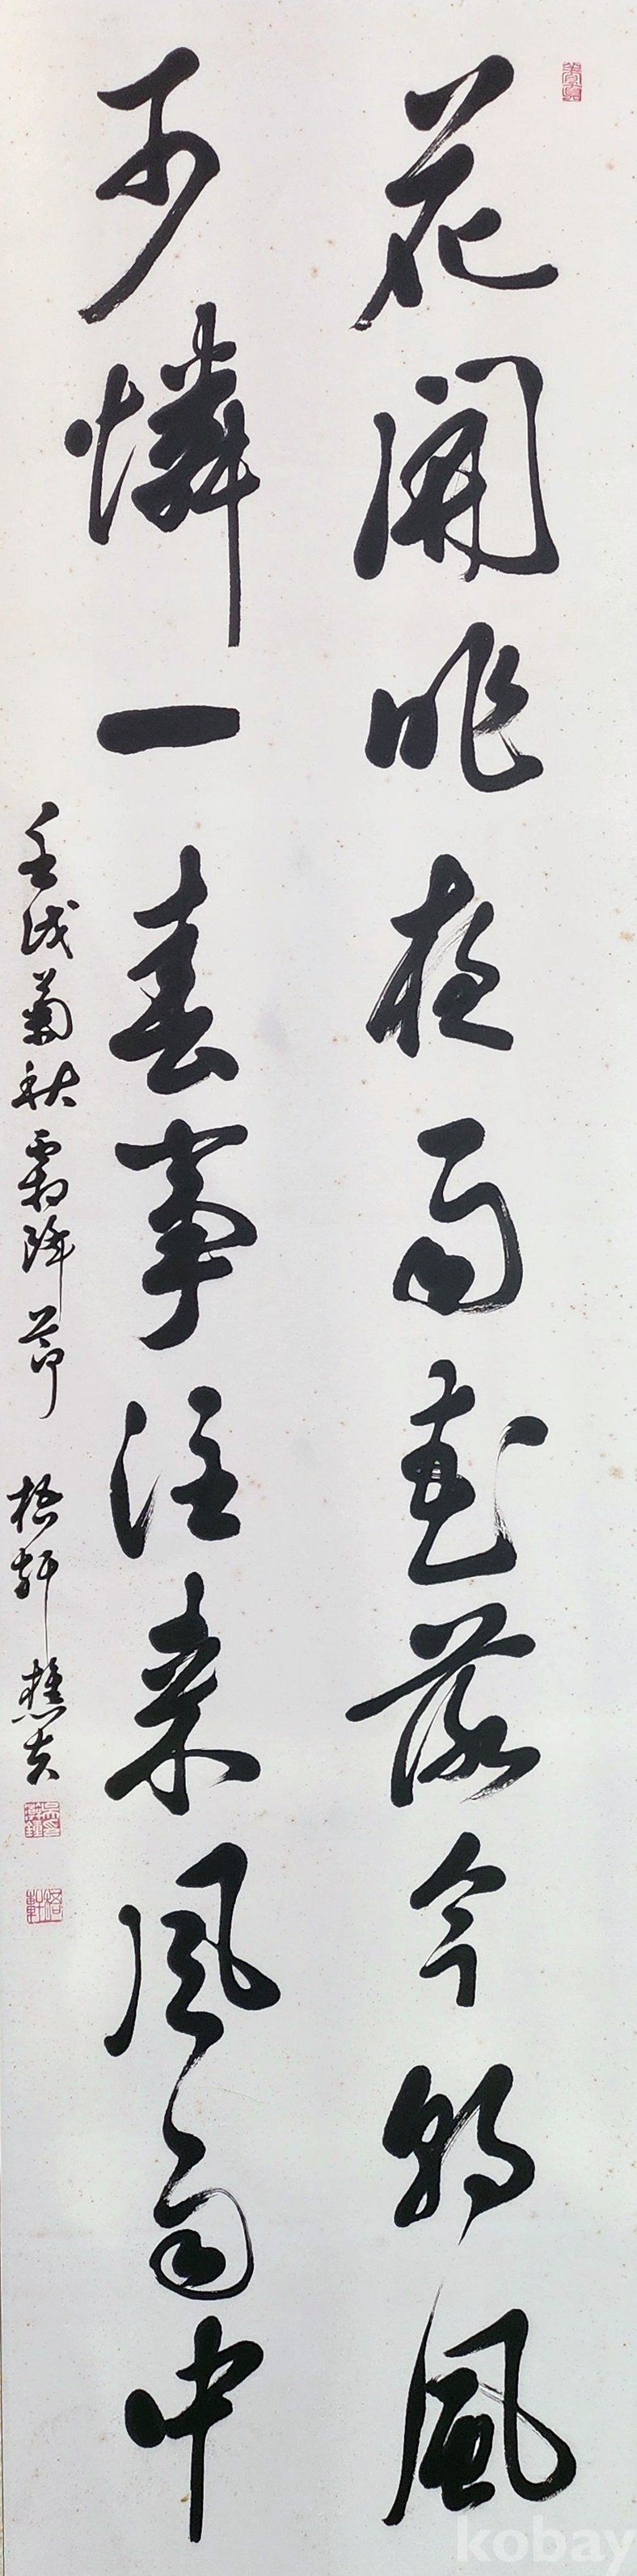 花開昨夜雨花落今朝風
可憐一春事往來風雨中
壬戌菊秋霜降節 梧軒 樵夫
kobay